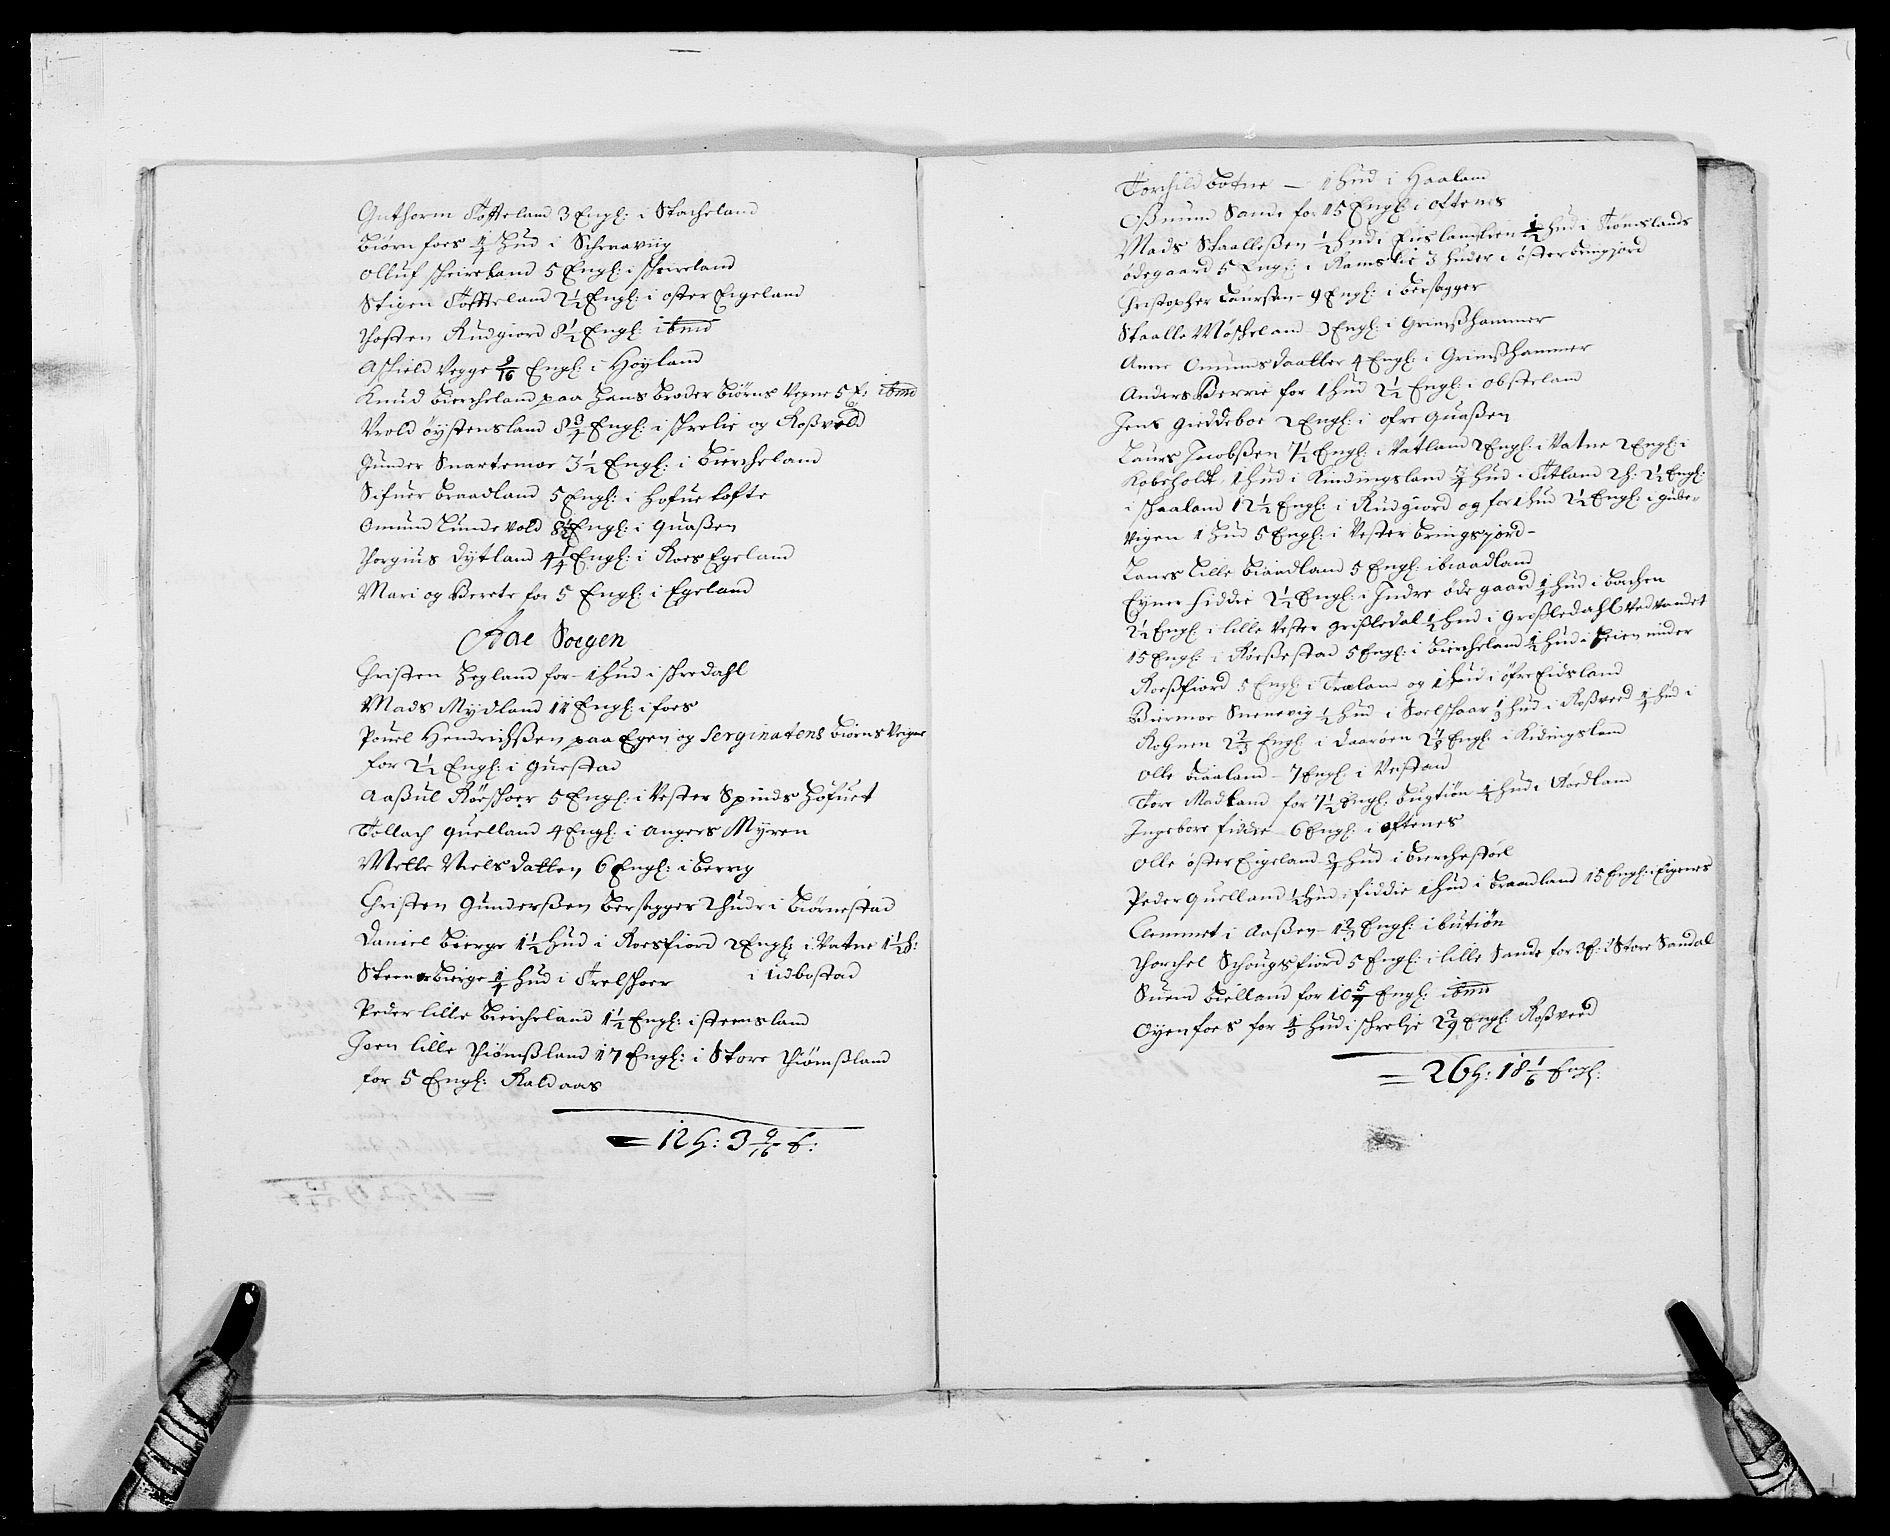 Guthorm Tofteland 3 Engl: i Stacheland
Biørn foes 1/4 Hud i Schraaviig
Olluf scheireland 5 Engl: i scheireland
Stigen Toffteland 2 1/2 Engl: i oster Eigeland
Thosten Rudgiord 8 1/2 Engl: ibmd
Assield Vegge 9/16 Engl: i Høyland
Knud Biercheland paa Hans Broder Børns Vegne 5 E: ibmd
Vrold øystensland 8 3/4 Engl: i schrelie og Roßvold
Gunder Snartemoe 3 1/2 Engl: i Biercheland
Sifuer Braadland 5 Engl: i Hofue tofte
Omund Lunde vold Engl: i Quaßen
Thorgius Dytland 4 1/4 Engl: i Roes Egeland
Mari og Berete for 5 Engl: i Egeland
Aae Sogen
Christen Hegland for 1 Hud i schredahl
Mads Mydland 11 Engl: i foes
Pouel Hendrichßen paa Egen og Serginatens Børns Veigne
for 2 1/2 Engl: i Guestad
Aaßul Røeschoer 5 Engl: i Vester Spinds Hofuet
Tollach Quelland 4 Engl: i Angers Myren
Mette Nielsdatter 6 Engl: i Berrig
Christen Gunderßen Bersagger 2 hudr i Biørnestad
Daniel Bierge 1 1/2 Hud i Roesfiord 2 Engl: i Vatne 1 1/2 h:
Steen Bierge 1/4 Hud i Trelschoer i Udbostad
Peder lille Biercheland 1 1/2 Engl: i steensland
Joen lille Thiømßland 17 Engl: i Store Thiømßland
for 5 Engl: Raldaas
= 12 h: 3 9/16 E:
Torchild Botne — 1 Hud i Haaland
Oßmund Sande for 15 Engl: i oftenes
Mads Staalleßen 1/2 hud i 1/2 hud i Tiømslands
ødegaard 5 Engl: i Ramslie 3 huder i øster Bringsiord
Christopher Laurßen 9 Engl: i Bersagger
Staalle Møscheland 3 Engl: i Grimßhammer
Anne Omunds daatter 4 Engl: i Grimßhammer
Anders Berrie for 1 hud 2 1/2 Engl: i obsteland
Jens Gieddeboe 2 Engl: i ofre Quaßen
Laurs Jacobßen 7 1/2 Engl: i Vatland 2 Engl: i Vatne 2 Engl: i
Kobeholdt, 1 hud i Kindingsland 3/4 hud i Titland 2 h: 2 1/2 Engl:
i schaaland 12 1/2 Engl: i Rudgiord og for 1 hud 2 1/2 Engl: i Gube-
vigen 1 hud 5 Engl: i Vester Bringsiord -
Laurs Lille Braadland 5 Engl: i Braadland
Eyner fiddie 2 1/2 Engl: i Indre øde gaard 1/4 hud i Bachen
2 1/2 Engl: i lille Vester Grißledal 1/2 hud i Grißledahl Ved vandet
15 Engl: i Røeßestad 5 Engl: i Biercheland 1/2 hud i Heien under
Roeßfiord 5 Engl: i Træland og 1 hud i øfre Eidsland
Biermoe Snenevig 1/2 hud i Soelschaar 1/3 hud i Roßvoed 1/4 hud i
Røgnen 2 2/3 Engl: i Daarøen 2 Engl: i Kidingsland
Olle Biaaland - 7 Engl: i Vestad
Tore Madland for 7 1/2 Engl: Bugtiøn 1/2 hud i Aaedland
Ingebor fiddie - 6 Engl: i oftenes
Olle øster Eigeland 3/4 hud i Bierchestoel
Peder Quelland 1/2 hud i fiddie 1 hud i Braadland 15 Engl: i Eigenes
Clemmet i Aaßen 1 2/3 Engl: i Butiøn
Thorchel Schougsfiord 5 Engl: i lille Sande for 3 E: i Store Sandal
Suend Bielland for 10 5/7 Engl: ibmd
Oyen foes for 1/3 hud i schrelje 2 2/9 Engl: Roßvoed
= 26 h: 18 1/6 Engl: